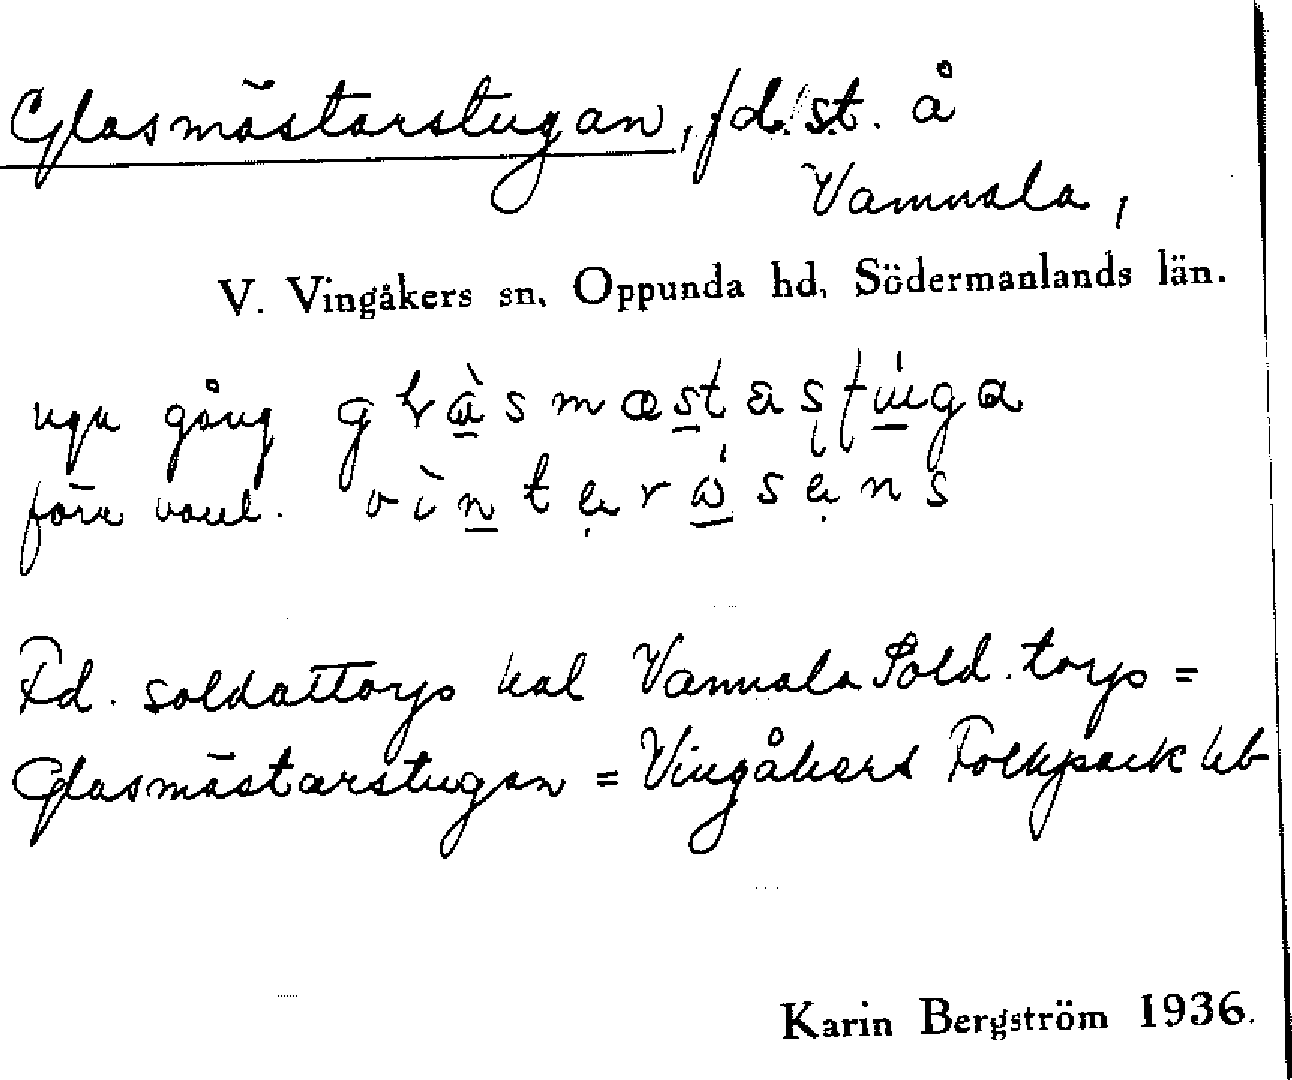 Glasmästarstugan, f.d. st. å
Vannala,
V. Vingåkers sn, Oppunda hd, Södermanlands län.
gång glàsmæstastúga
före vìnterǻsens
Fd. soldattorp Vannala Sold. torp =
Glasmästarstugan = Vingåkers Folkpark
Karin Bergström 1936.